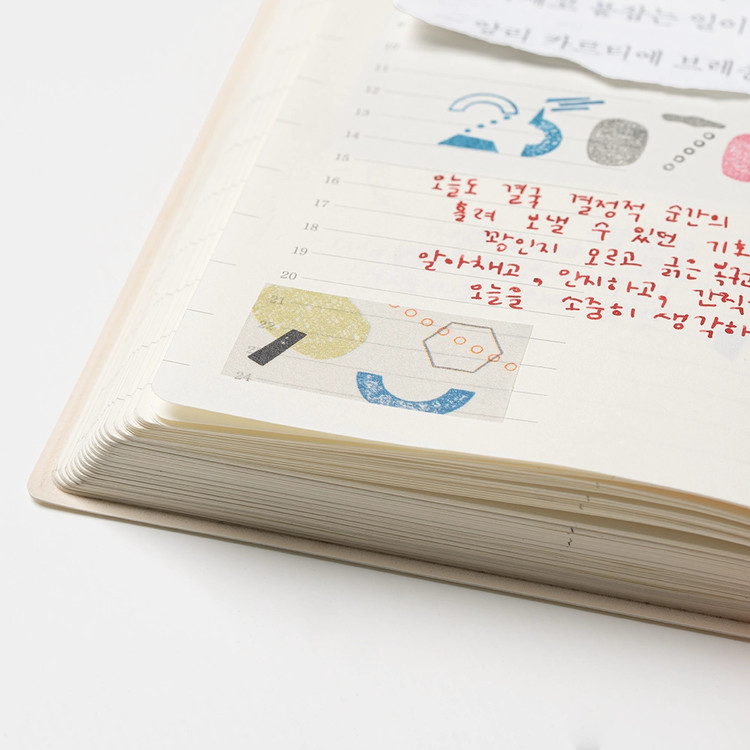 붙잡는 일이
앙리 카르티에 브레송
11
12
13
14
15
16
17
18
19
20
21
22
23
24
25 07
오늘도 결국 결정적 순간의
흘려 보낼 수 있던 기회
꽝인지 모르고 긁은 복권
알아채고, 인지하고, 간직
오늘을 소중히 생각하